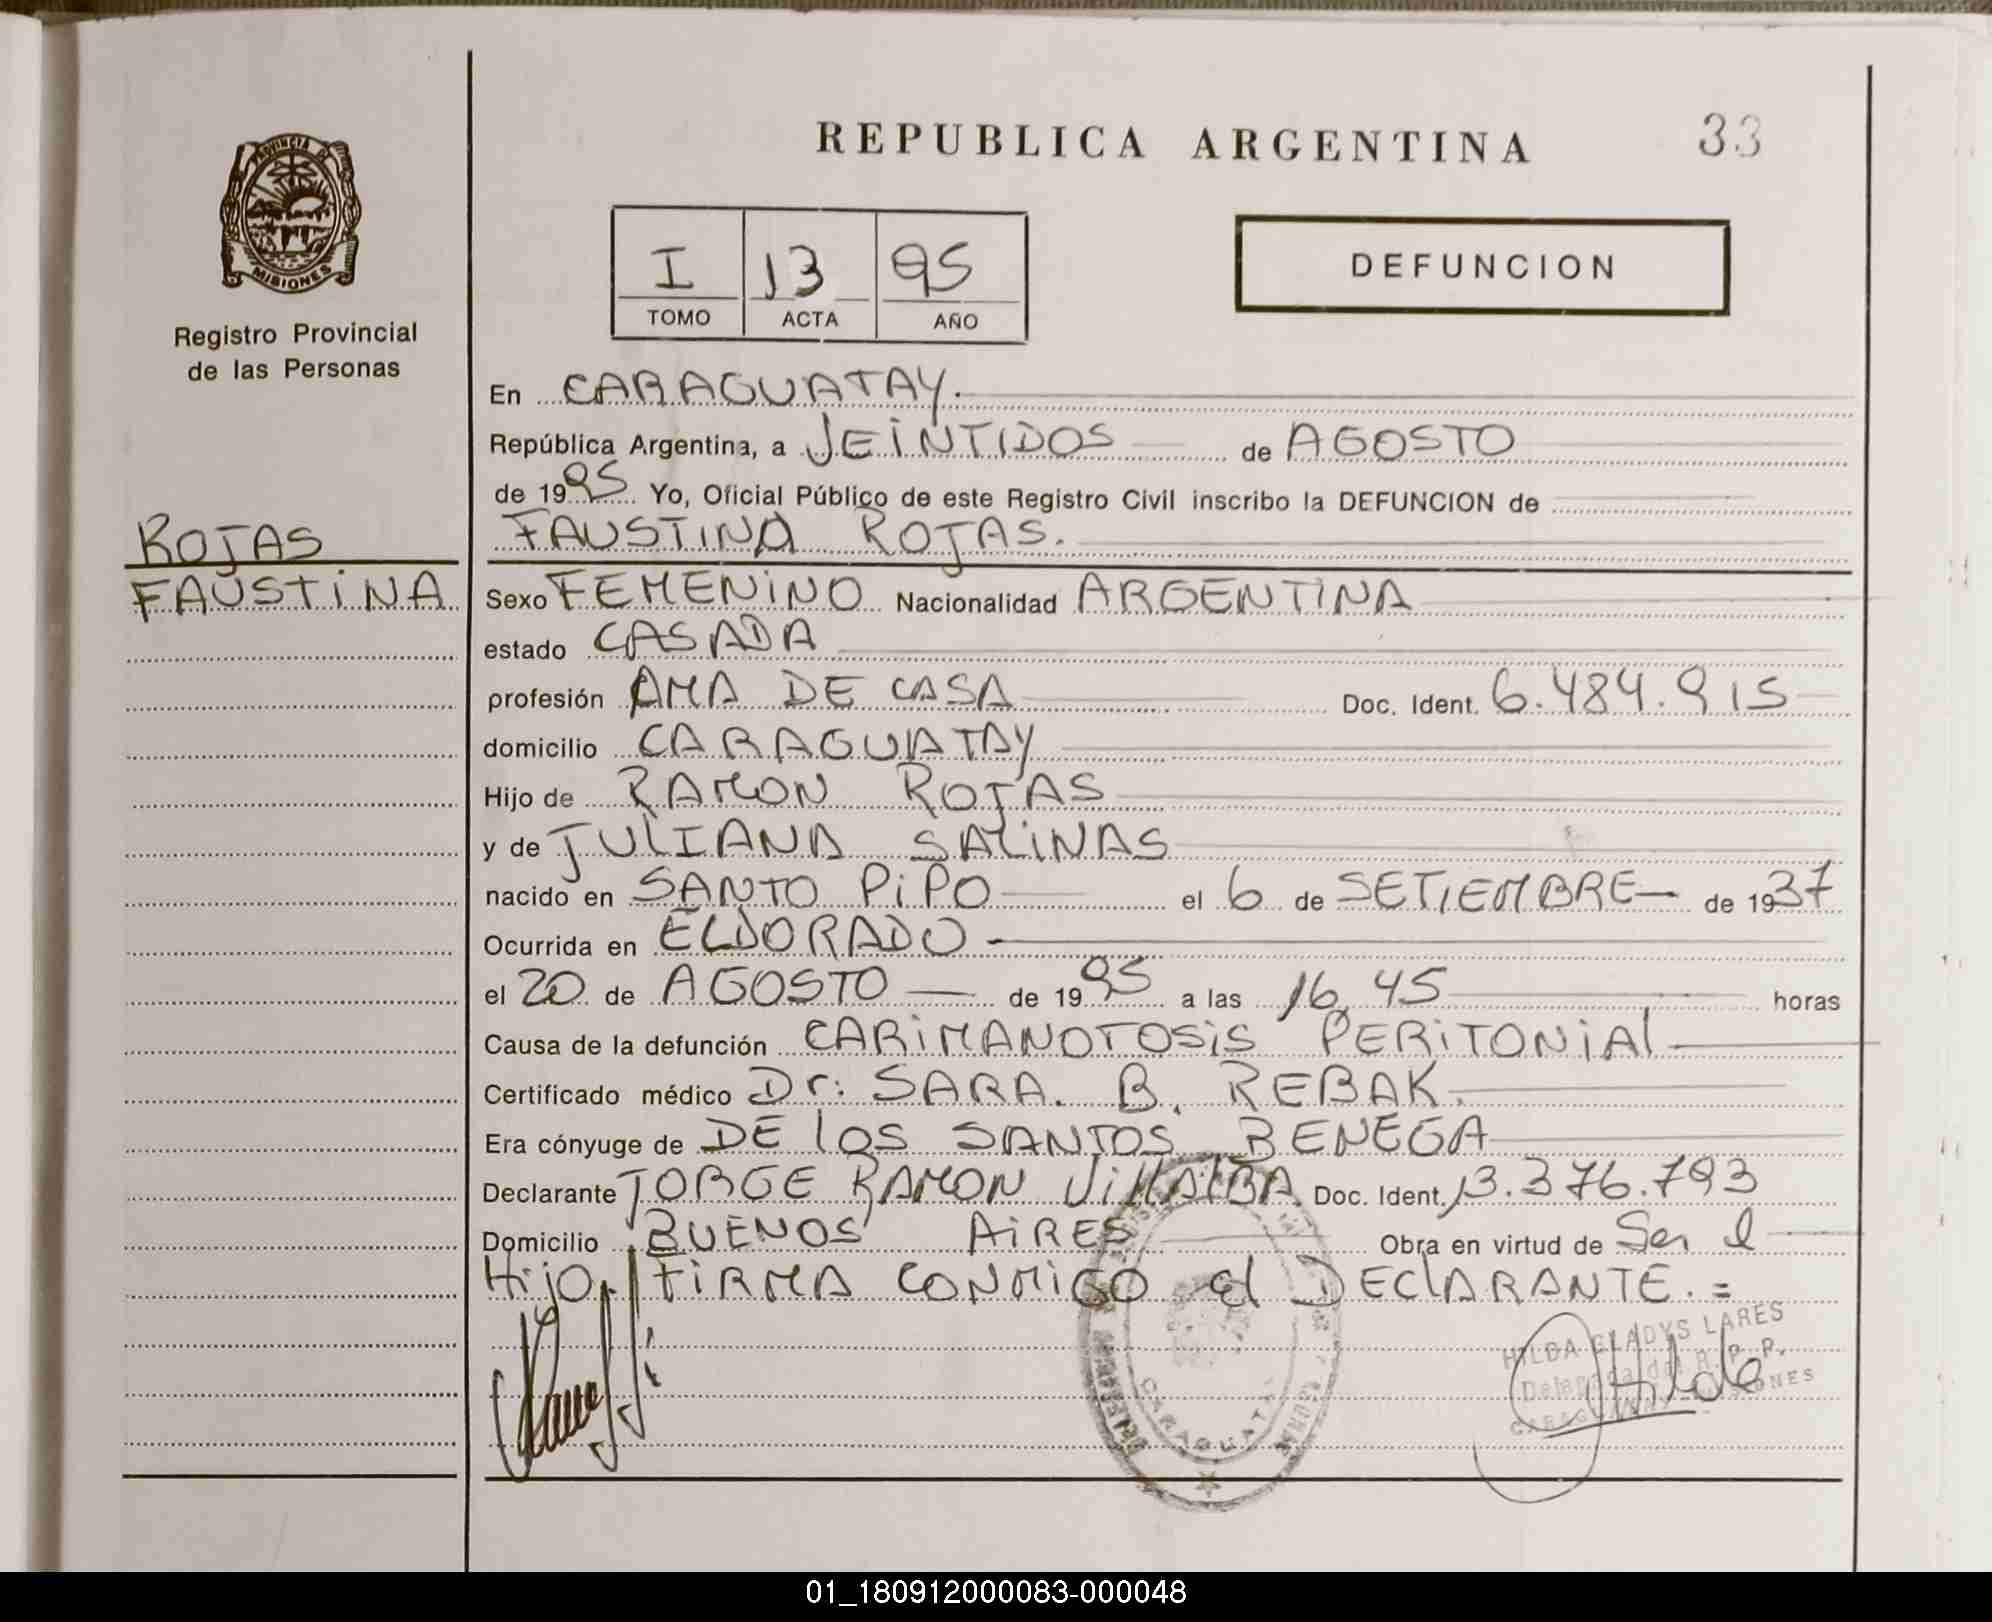 REPUBLICA ARGENTINA
33
PROVINCIA DE
MISIONES
Registro Provincial
de las Personas
I 13 95
TOMO ACTA AÑO
DEFUNCION
En CARAGUATAY.
República Argentina, a VEINTIDOS de AGOSTO
de 1995 Yo, Oficial Público de este Registro Civil inscribo la DEFUNCION de
FAUSTINA ROJAS.
ROJAS
FAUSTINA
Sexo FEMENINO Nacionalidad ARGENTINA
estado CASADA
profesión AMA DE CASA Doc. Ident. 6.484.915
domicilio CARAGUATAY
Hijo de RAMON ROJAS
y de JULIANA SALINAS
nacido en SANTO PIPO el 6 de SETIEMBRE de 1937
Ocurrida en ELDORADO
el 20 de AGOSTO de 1995 a las 16,45 horas
Causa de la defunción CARIMANOTOSIS PERITONIAL
Certificado médico Dr: SARA. B. REBAK.
Era cónyuge de DE LOS SANTOS BENEGA
Declarante JORGE RAMON VILLALBA Doc. Ident. 13.376.793
Domicilio BUENOS AIRES Obra en virtud de Ser el
Hijo. FIRMA CONMIGO el DECLARANTE. =
HILDA GLADYS LARES
Delegada del R. P. P.
CARAGUATAY - MISIONES
CARAGUATAY
01_180912000083-000048